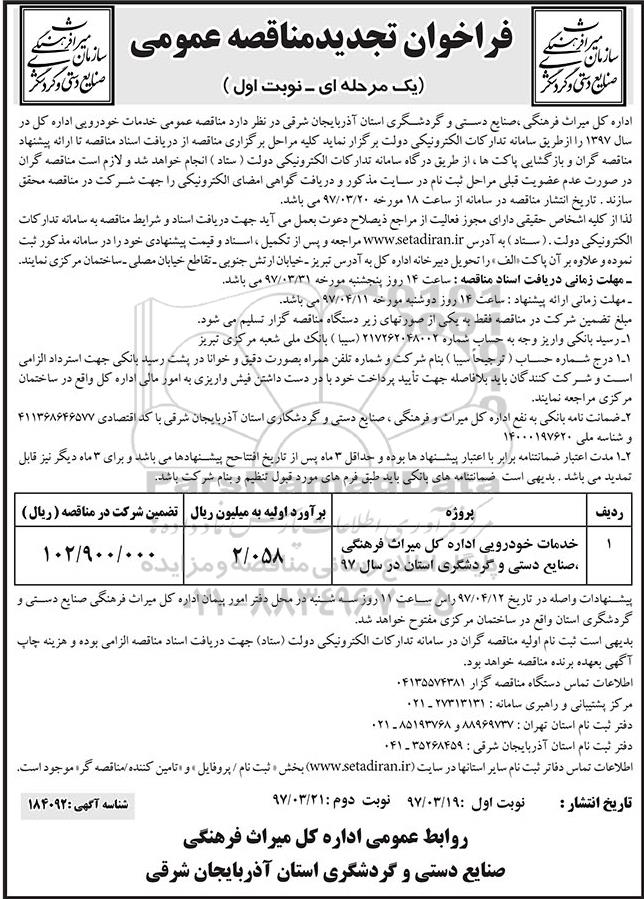 سازمان میراث فرهنگی
صنایع دستی و گردشگری
فراخوان تجدید مناقصه عمومی
(یک مرحله ای ـ نوبت اول )
سازمان میراث فرهنگی
صنایع دستی و گردشگری
اداره کل میراث فرهنگی ،صنایع دستی و گردشگری استان آذربایجان شرقی در نظر دارد مناقصه عمومی خدمات خودرویی اداره کل در
سال ۱۳۹۷ را ازطریق سامانه تدارکات الکترونیکی دولت برگزار نماید کلیه مراحل برگزاری مناقصه از دریافت اسناد مناقصه تا ارائه پیشنهاد
مناقصه گران و بازگشایی پاکت ها ، از طریق درگاه سامانه تدارکات الکترونیکی دولت ( ستاد ) انجام خواهد شد و لازم است مناقصه گران
در صورت عدم عضویت قبلی مراحل ثبت نام در سایت مذکور و دریافت گواهی امضای الکترونیکی را جهت شرکت در مناقصه محقق
سازند . تاریخ انتشار مناقصه در سامانه از ساعت ۱۸ مورخه ۹۷/۰۳/۲۰ می باشد.
لذا از کلیه اشخاص حقیقی دارای مجوز فعالیت از مراجع ذیصلاح دعوت بعمل می آید جهت دریافت اسناد و شرایط مناقصه به سامانه تدارکات
الکترونیکی دولت . (ستاد ) به آدرس www.setadiran.ir مراجعه و پس از تکمیل ، اسناد و قیمت پیشنهادی خود را در سامانه مذکور ثبت
نموده و علاوه بر آن پاکت «الف» را تحویل دبیرخانه اداره کل به آدرس تبریز ـ خیابان ارتش جنوبی ـ تقاطع خیابان مصلی ـ ساختمان مرکزی نمایند.
ـ مهلت زمانی دریافت اسناد مناقصه : ساعت ۱۴ روز پنجشنبه مورخه ۹۷/۰۳/۳۱ می باشد.
ـ مهلت زمانی ارائه پیشنهاد : ساعت ۱۴ روز دوشنبه مورخه ۹۷/۰۴/۱۱ می باشد.
مبلغ تضمین شرکت در مناقصه فقط به یکی از صورتهای زیر دستگاه مناقصه گزار تسلیم می شود.
۱ـ رسید بانکی واریز وجه به حساب شماره ۲۱۷۲۶۲۰۴۸۰۰۲ (سیبا ) بانک ملی شعبه مرکزی تبریز
۱ـ۱ درج شماره حساب ( ترجیحاً سیبا ) بنام شرکت و شماره تلفن همراه بصورت دقیق و خوانا در پشت رسید بانکی جهت استرداد الزامی
است و شرکت کنندگان باید بلافاصله جهت تأیید پرداخت خود با در دست داشتن فیش واریزی به امور مالی اداره کل واقع در ساختمان
مرکزی مراجعه نمایند.
۲ـ ضمانت نامه بانکی به نفع اداره کل میراث و فرهنگی ، صنایع دستی و گردشکاری استان آذربایجان شرقی با کد اقتصادی ۴۱۱۳۶۸۶۴۶۵۷۷
و شناسه ملی ۱۴۰۰۰۱۹۷۶۲۰
۲ـ۱ مدت اعتبار ضمانتنامه برابر با اعتبار پیشنهاد ها بوده و حداقل ۳ ماه پس از تاریخ افتتاحح پیشنهادها می باشد و برای ۳ ماه دیگر نیز قابل
تمدید می باشد . بدیهی است ضمانتنامه های بانکی باید طبق فرم های مورد قبول تنظیم و بنام شرکت باشد.
ردیف پروژه برآورد اولیه به میلیون ریال تضمین شرکت در مناقصه ( ریال )
۱ خدمات خودرویی اداره کل میراث فرهنگی ،صنایع دستی و گردشگری استان در سال ۹۷ ۲/۰۵۸ ۱۰۲/۹۰۰/۰۰۰
پیشنهادات واصله در تاریخ ۹۷/۰۴/۱۲ راس ساعت ۱۱ روز سه شنبه در محل دفتر امور پیمان اداره کل میراث فرهنگی صنایع دستی و
گردشگری استان واقع در ساختمان مرکزی مفتوح خواهد شد.
بدیهی است ثبت نام اولیه مناقصه گران در سامانه تدارکات الکترونیکی دولت (ستاد) جهت دریافت اسناد مناقصه الزامی بوده و هزینه چاپ
آگهی بعهده برنده مناقصه خواهد بود.
اطلاعات تماس دستگاه مناقصه گزار ۰۴۱۳۵۵۷۴۳۸۱
مرکز پشتیبانی و راهبری سامانه : ۲۷۳۱۳۱۳۱ ـ ۰۲۱
دفتر ثبت نام استان تهران : ۸۸۹۶۹۷۳۷ و ۸۵۱۹۳۷۶۸ ـ ۰۲۱
دفتر ثبت نام استان آذربایجان شرقی : ۳۵۲۶۸۴۵۹ ـ ۰۴۱
اطلاعات تماس دفاتر ثبت نام سایر استانها در سایت (www.setadiran.ir) بخش « ثبت نام / پروفایل » و «تامین کننده/مناقصه گر» موجود است.
تاریخ انتشار : نوبت اول :۹۷/۰۳/۱۹ نوبت دوم :۹۷/۰۳/۲۱
شناسه آگهی :۱۸۴۰۹۲
روابط عمومی اداره کل میراث فرهنگی
صنایع دستی و گردشگری استان آذربایجان شرقی
ParsNamadData
۰۲۱-۸۸۳۴۹۶۷۰-۵